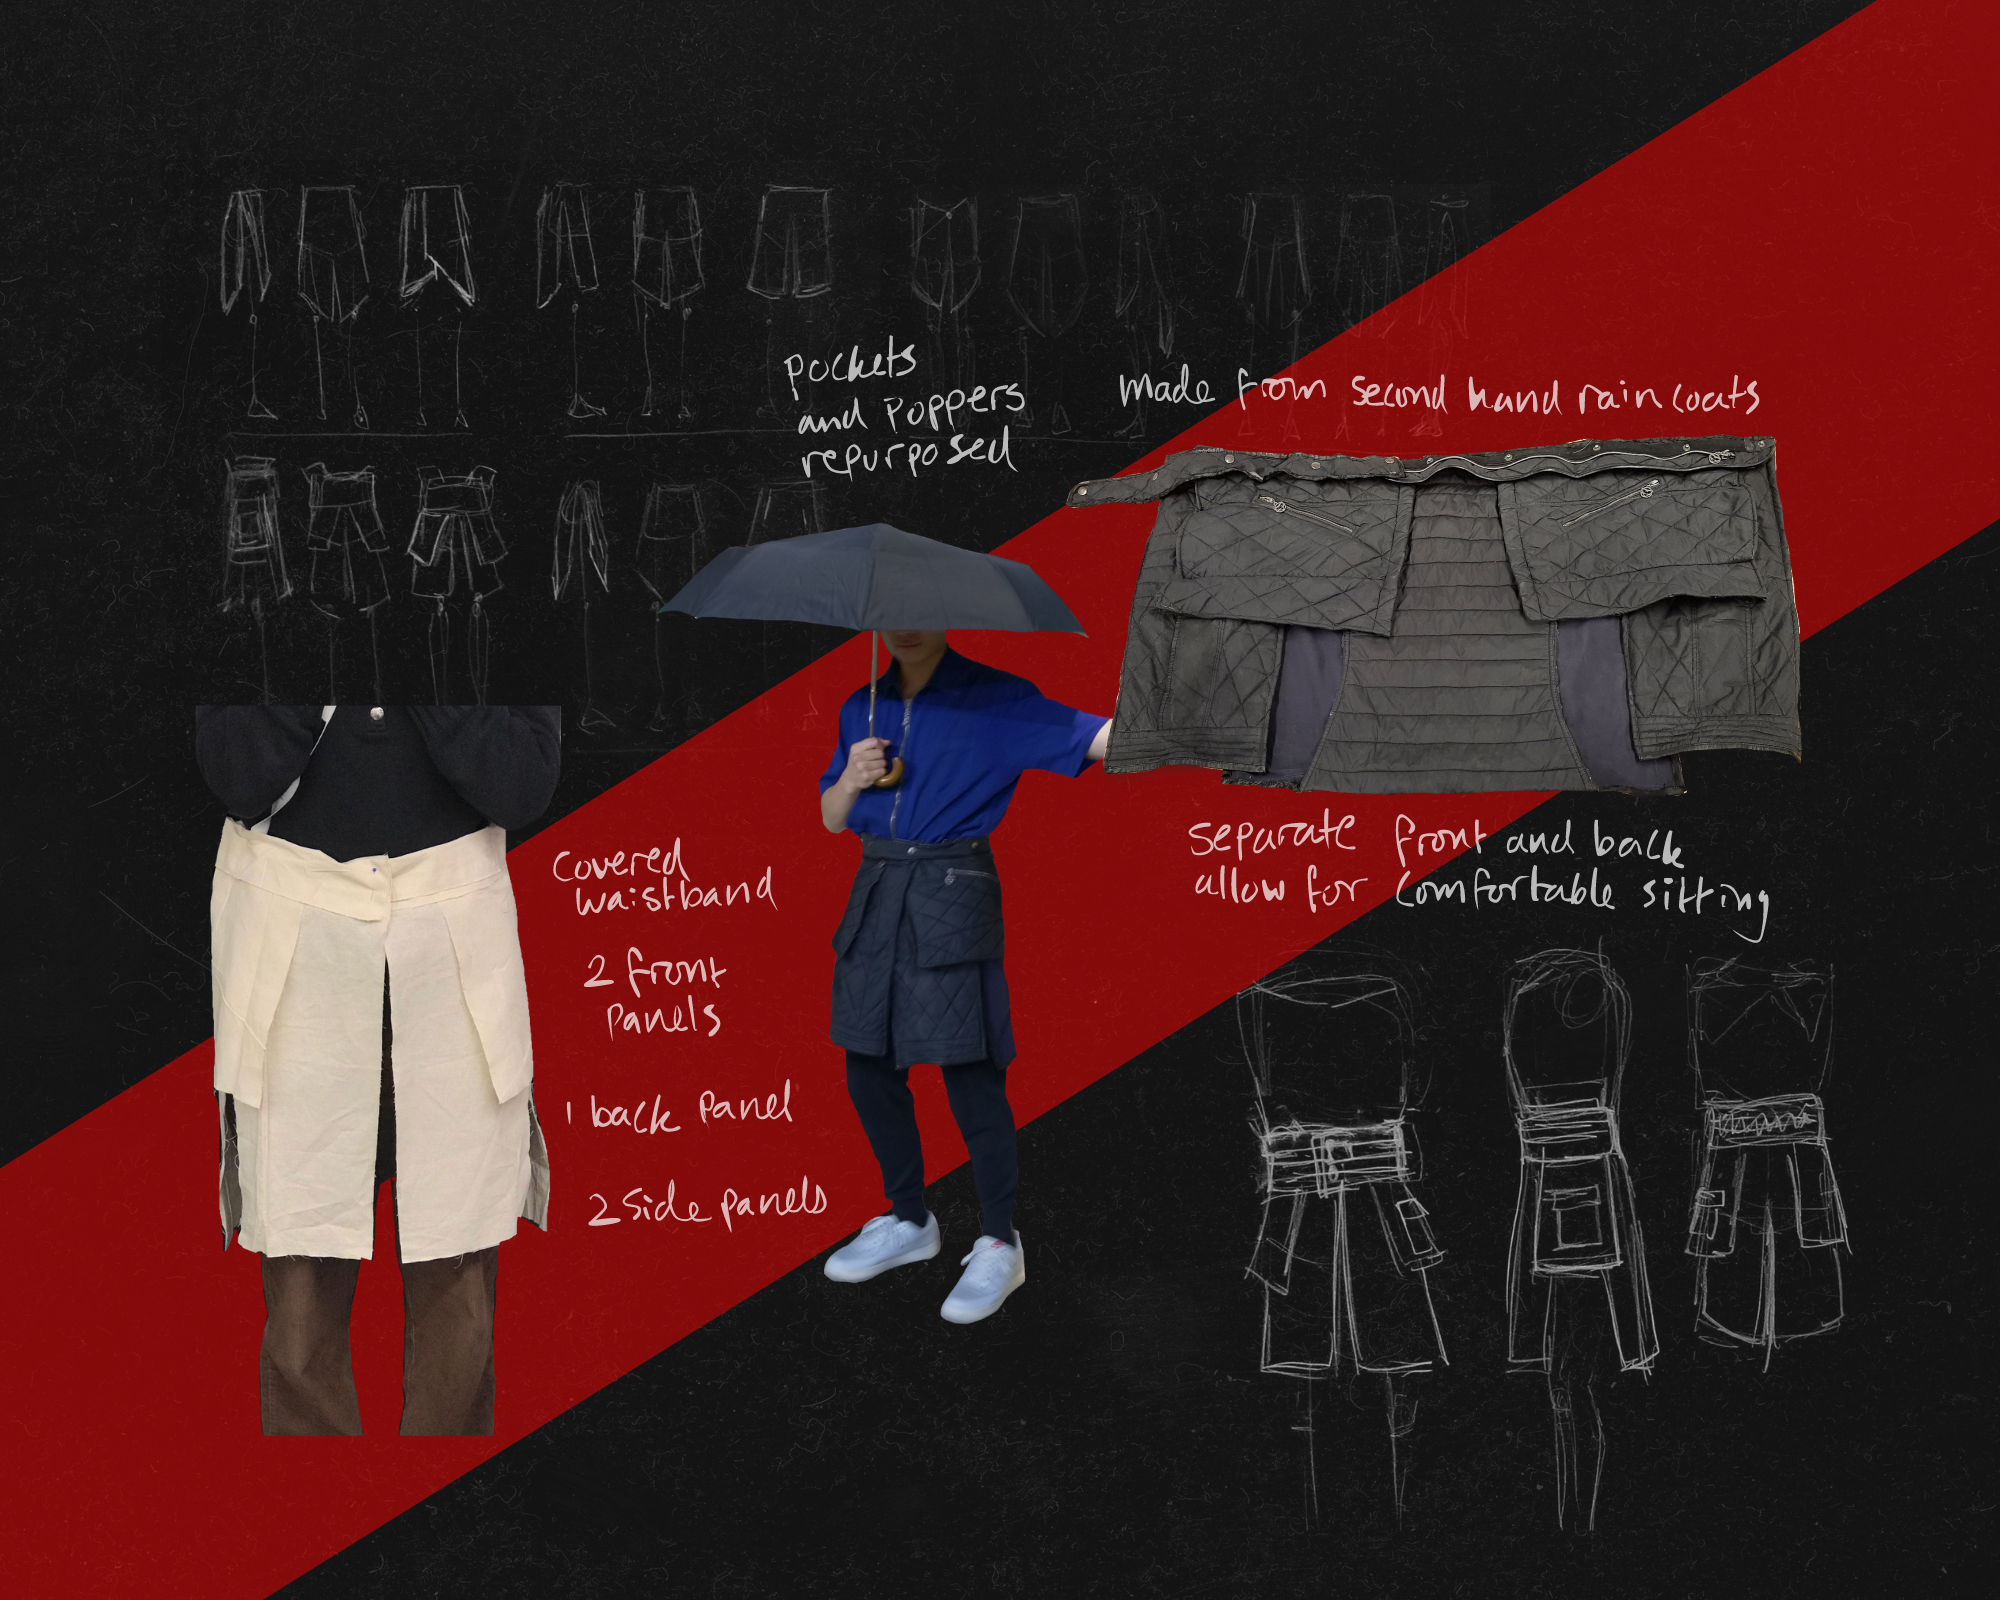 pockets
and poppers
repurposed
made from second hand raincoats
covered
waistband
2 front
panels
1 back panel
2 side panels
separate front and back
allow for comfortable sitting